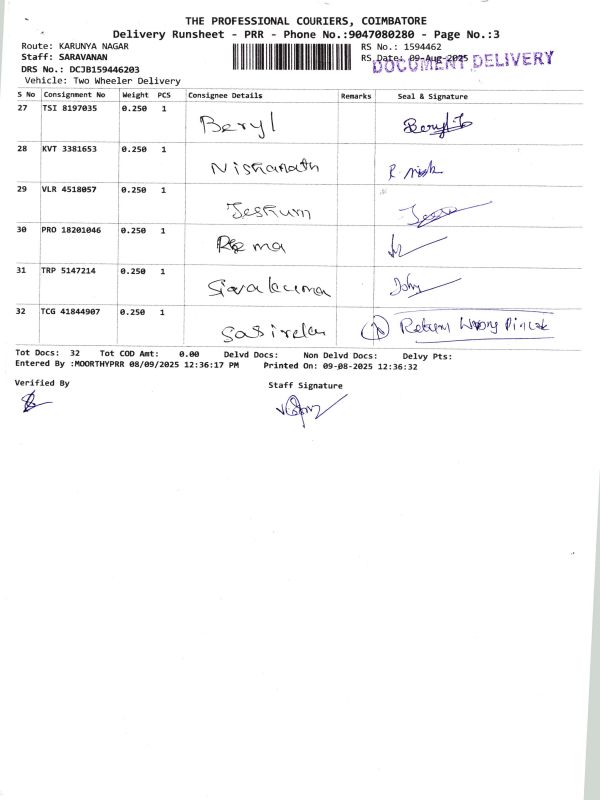 THE PROFESSIONAL COURIERS, COIMBATORE
Delivery Runsheet - PRR - Phone No.:9047080280 - Page No.:3
Route: KARUNYA NAGAR
RS No.: 1594462
Staff: SARAVANAN
RS Date: 09-Aug-2025
DOCUMENT DELIVERY
DRS No.: DCJB159446203
Vehicle: Two Wheeler Delivery
S No Consignment No Weight PCS Consignee Details Remarks Seal & Signature
27 TSI 8197035 0.250 1 Beryl
28 KVT 3381653 0.250 1 Nishanath
29 VLR 4518057 0.250 1
30 PRO 18201046 0.250 1
31 TRP 5147214 0.250 1 John
32 TCG 41844907 0.250 1 Return Wrong Pincode
Tot Docs: 32 Tot COD Amt: 0.00 Delvd Docs: Non Delvd Docs: Delvy Pts:
Entered By :MOORTHYPRR 08/09/2025 12:36:17 PM Printed On: 09-08-2025 12:36:32
Verified By
Staff Signature